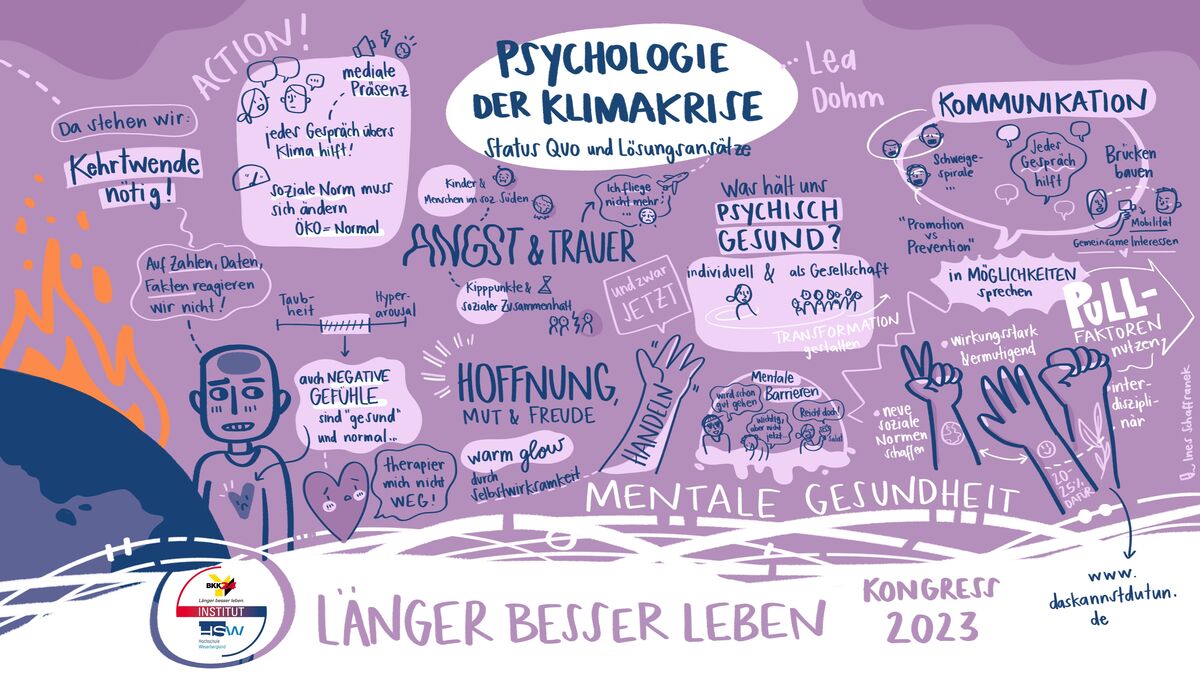 PSYCHOLOGIE
DER KLIMAKRISE
Status Quo und Lösungsansätze
Lea
Dohm
ACTION!
mediale
Präsenz
jedes Gespräch übers
Klima hilft!
soziale Norm muss
sich ändern
ÖKO = Normal
Da stehen wir:
Kehrtwende
nötig!
Auf Zahlen, Daten,
Fakten reagieren
wir nicht!
Taub-
heit
Hyper-
arousal
auch NEGATIVE
GEFÜHLE
sind "gesund"
und normal...
therapier
mich nicht
WEG!
Kinder &
Menschen im soz. Süden
Ich fliege
nicht mehr
...
ANGST & TRAUER
Kipppunkte &
sozialer Zusammenhalt
und zwar
JETZT
HOFFNUNG,
MUT & FREUDE
warm glow
durch
Selbstwirksamkeit
HANDELN
Was hält uns
PSYCHISCH
GESUND?
individuell & als Gesellschaft
TRANSFORMATION
gestalten
Mentale
Barrieren
wird schon
gut gehen
Wichtig,
aber nicht
jetzt...
Reicht doch!
Salat
KOMMUNIKATION
Schweige-
spirale
...
Jedes
Gespräch
hilft
Brücken
bauen
Mobilität
Gemeinsame Interessen
"Promotion
vs
Prevention"
in MÖGLICHKEITEN
sprechen
PULL-
FAKTOREN
nutzen
wirkungsstark
& ermutigend
neue
soziale
Normen
schaffen
inter-
diszipli-
när
20-
25%
DAFÜR
MENTALE GESUNDHEIT
www.
daskannstdutun.
de
BKK24
Länger besser leben.
INSTITUT
HSW
Hochschule
Weserbergland
LÄNGER BESSER LEBEN
KONGRESS
2023
Ines Schaffranek